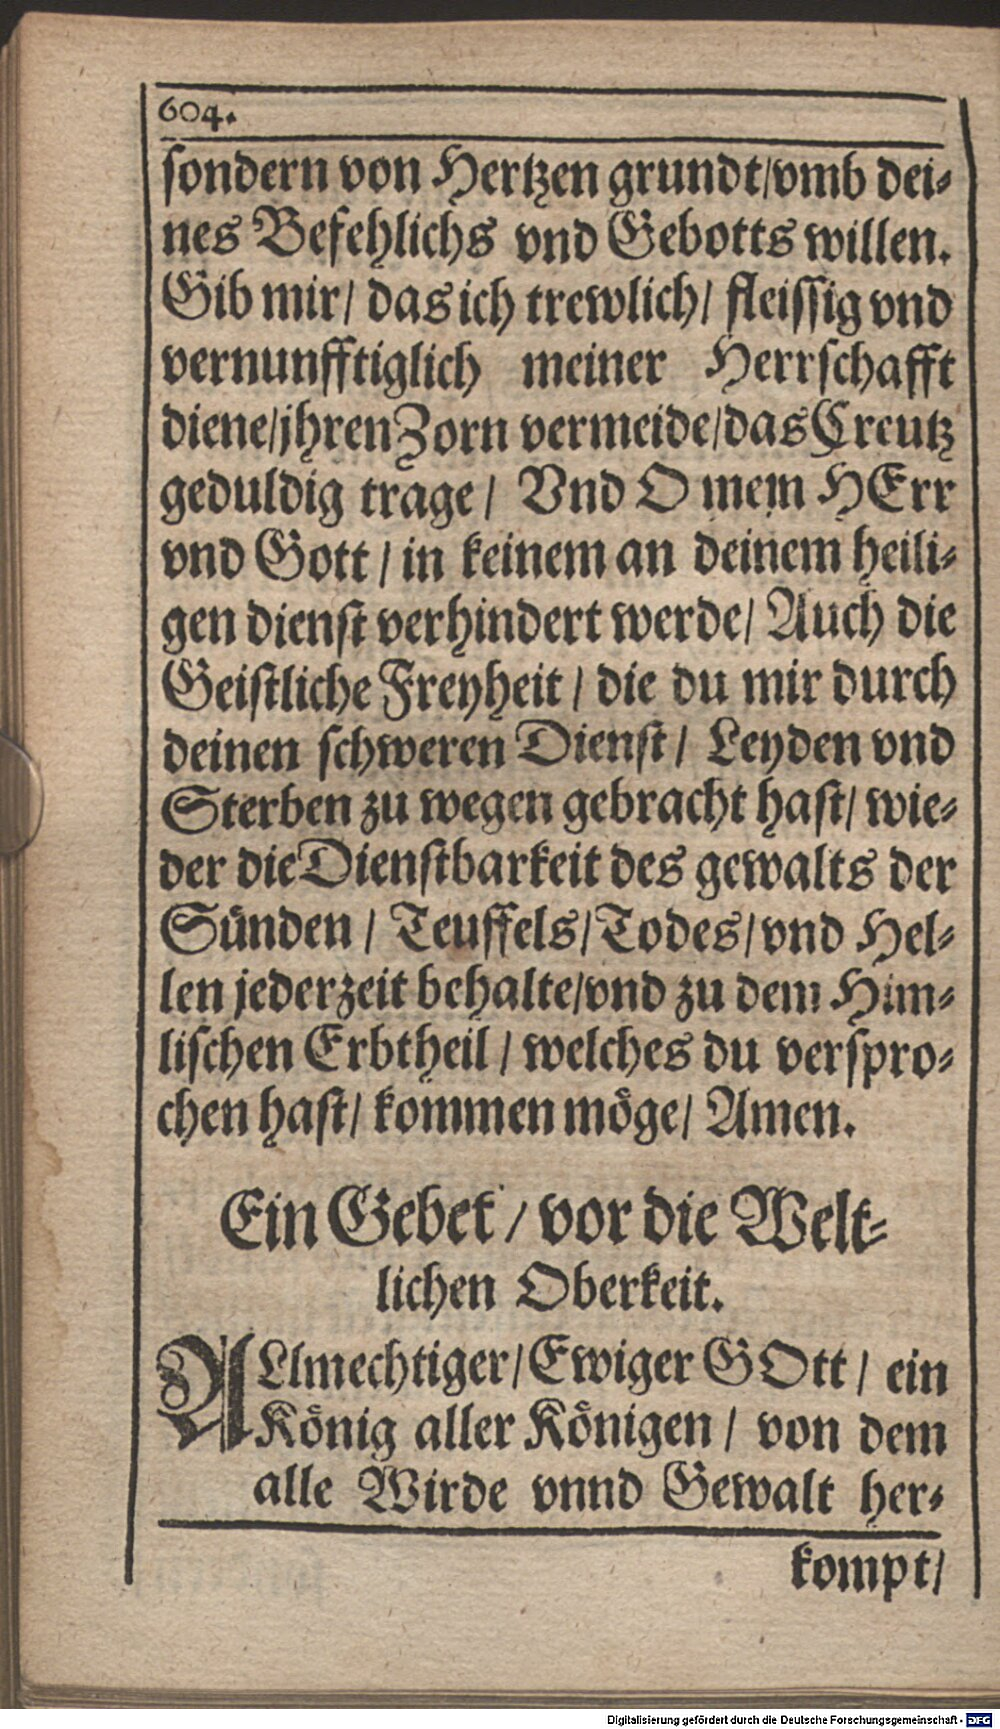 604.
sondern von Hertzen grundt/vmb dei-
nes Befehlichs vnd Gebotts willen.
Gib mir/ das ich trewlich/ fleissig vnd
vernunfftiglich meiner Herrschafft
diene/jhren Zorn vermeide/das Creutz
geduldig trage/ Vnd O mein HErr
vnd Gott/ in keinem an deinem heili-
gen dienst verhindert werde/ Auch die
Geistliche Freyheit/ die du mir durch
deinen schweren Dienst/ Leyden vnd
Sterben zu wegen gebracht hast/ wie-
der die Dienstbarkeit des gewalts der
Sünden/ Teuffels/Todes/vnd Hel-
len jederzeit behalte/vnd zu dem Him-
lischen Erbtheil/ welches du verspro-
chen hast/ kommen möge/ Amen.
Ein Gebet/ vor die Welt-
lichen Oberkeit.
ALlmechtiger/Ewiger GOtt/ ein
König aller Königen/ von dem
alle Wirde vnnd Gewalt her-
kompt/
Digitalisierung gefördert durch die Deutsche Forschungsgemeinschaft - DFG